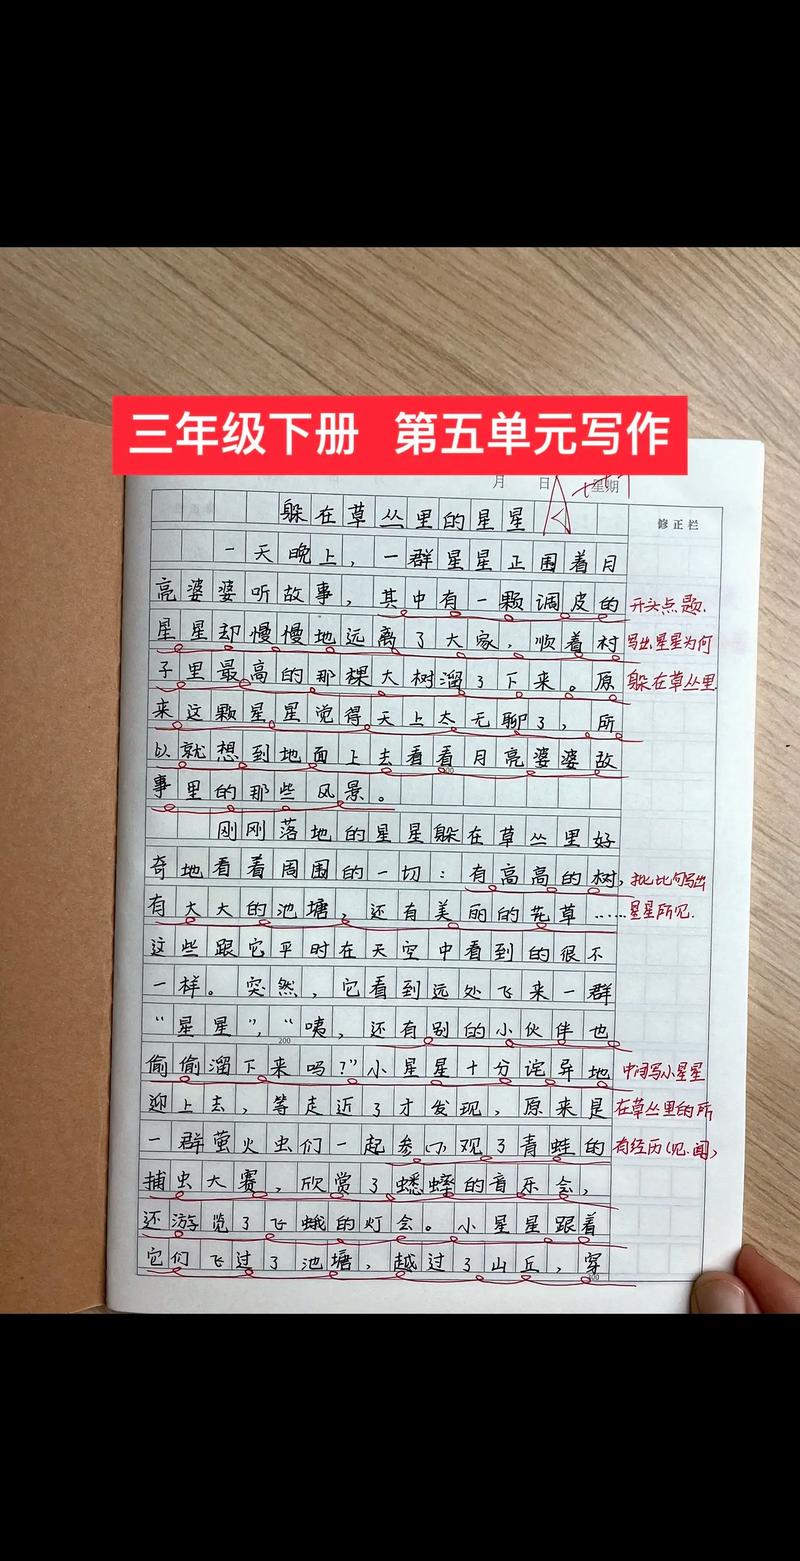 三年级下册 第五单元写作
月 日 星期
修正栏
躲在草丛里的星星
一天晚上，一群星星正围着月
亮婆婆听故事，其中有一颗调皮的
开头点题.
星星却慢慢地远离了大家，顺着村
写出星星为何
子里最高的那棵大树溜了下来。原
躲在草丛里.
来这颗星星觉得天上太无聊了，所
以就想到地面上去看看月亮婆婆故
事里的那些风景。
刚刚落地的星星躲在草丛里好
奇地看着周围的一切：有高高的树，
排比句写出
有大大的池塘，还有美丽的花草……
星星所见.
这些跟它平时在天空中看到的很不
一样。突然，它看到远处飞来一群
“星星”，“咦，还有别的小伙伴也
200
偷偷溜下来吗？”小星星十分诧异地
中间写小星星
迎上去，等走近了才发现，原来是
在草丛里的所
一群萤火虫们一起参观了青蛙的
有经历(见.闻,
捕虫大赛，欣赏了蟋蟀的音乐会，
还游览了飞蛾的灯会。小星星跟着
它们飞过了池塘，越过了山丘，穿
300